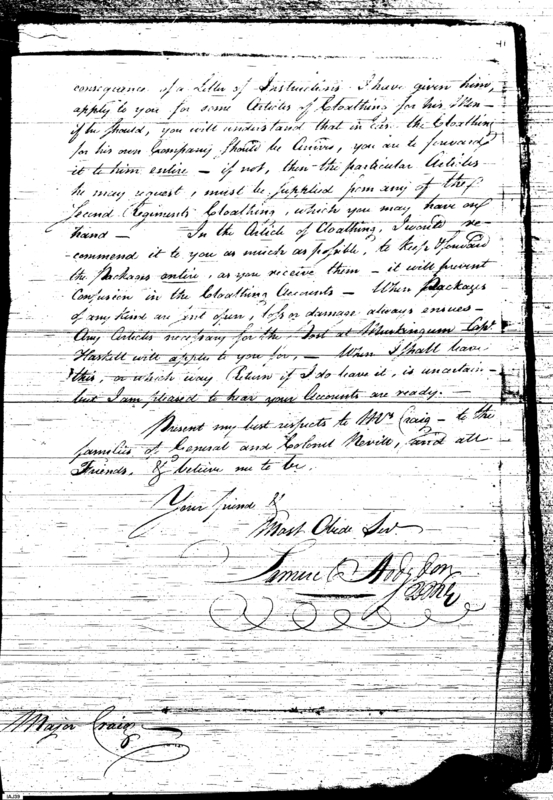 consequence of a Letter of Instructions I have given him,
apply to you for some Articles of Cloathing for his Men —
if he should, you will understand that in case the Cloathing
for his own Company should be arrived, you are to forward
it to him entire — if not, then the particular Articles
he may request, must be supplied from any of the
Second Regiments Cloathing, which you may have on
hand — In the Article of Cloathing, I would re-
commend it to you as much as possible, to keep & forward
the Packages entire, as you receive them — it will prevent
Confusion in the Cloathing Accounts — When Packages
of any kind are put open, loss or damage always ensues —
Any Articles necessary for the Post at Muskingum Capt
Haskell will apply to you for, — When I shall leave
this, or which way Return if I do leave it, is uncertain —
but I am pleased to hear your Accounts are ready.
Present my best respects to Mrs Craig — to the
families of General and Colonel Nevill, and all
Friends, & believe me to be.
Your friend &
Most Obide Ser
Samuel Hodgdon
QMG
Major Craig